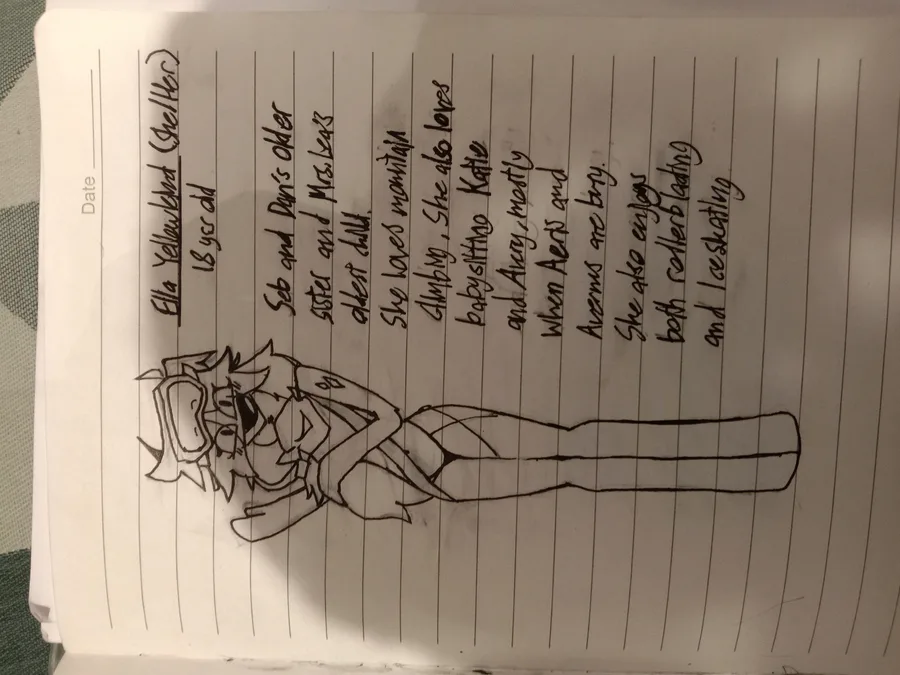 Date
Ella Yellowblood (She/Her)
18 yrs old
Seb and Dan's older
sister and Mrs. Lea's
oldest child.
She loves mountain
climbing. She also loves
babysitting Katie
and Avery, mostly
when Aeris and
are busy.
She also enjoys
both rollerblading
and Iceskating